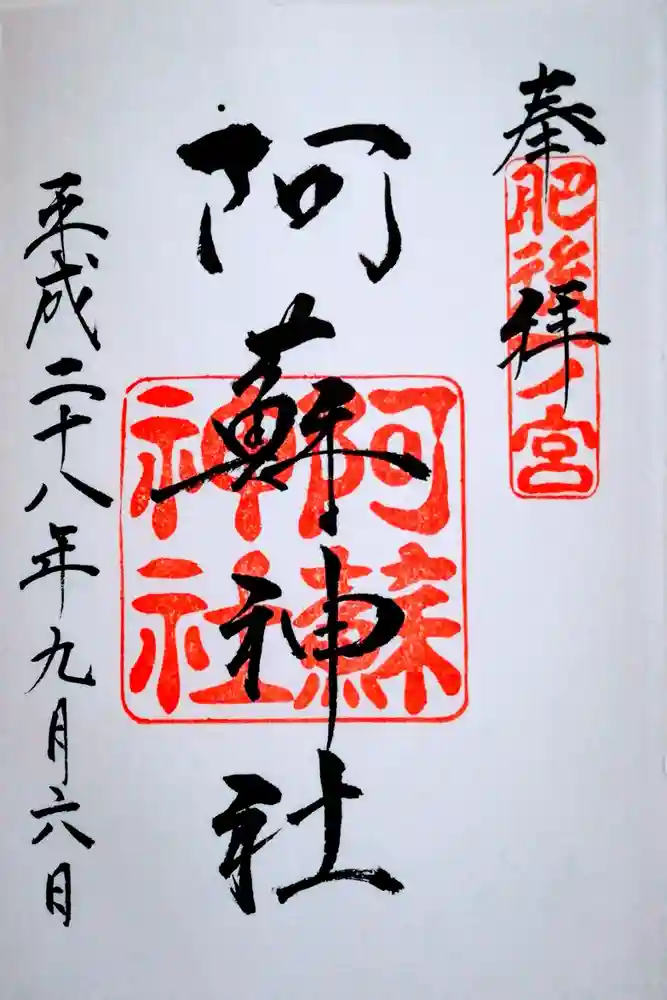 奉拝
肥後一ノ宮
阿蘇神社
阿蘇
神社
平成二十八年九月六日